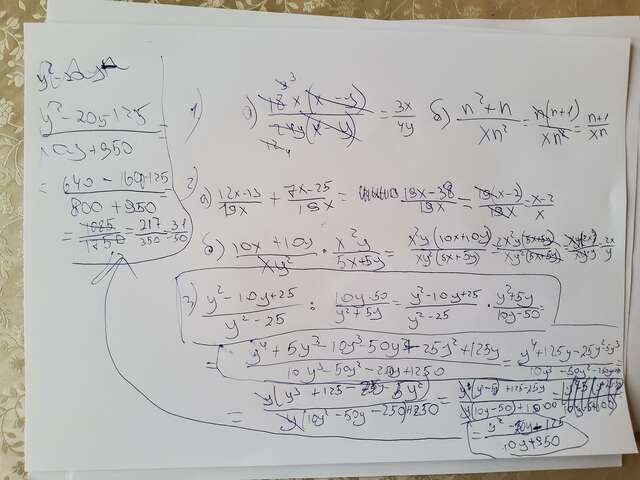 y² - 20y + 125
10y + 950
= 640 - 160 + 125
800 + 950
= 1085/1750 = 217/350 = 31/50
1) а) 18x(x-y) / 24y(x-y) = 3x/4y б) n²+n / xn² = n(n+1) / xn² = n+1 / xn
2)
а) 12x-13 / 19x + 7x-25 / 19x = 19x-38 / 19x = 19(x-2) / 19x = x-2 / x
б) 10x+10y / xy² · x²y / 5x+5y = x²y(10x+10y) / xy²(5x+5y) = 2x²y(5x+5y) / xy²(5x+5y) = 2x / y
3) y²-10y+25 / y²-25 : 10y-50 / y²+5y = y²-10y+25 / y²-25 · y²+5y / 10y-50
= y⁴+5y³-10y³-50y²+25y²+125y / 10y³-50y²-250y+1250 = y⁴+125y-25y²-5y³ / 10y³-50y²-250y
= y(y³+125-25y-5y²) / y(10y²-50y-250)+1250 =
= y²-20y+125 / 10y+950